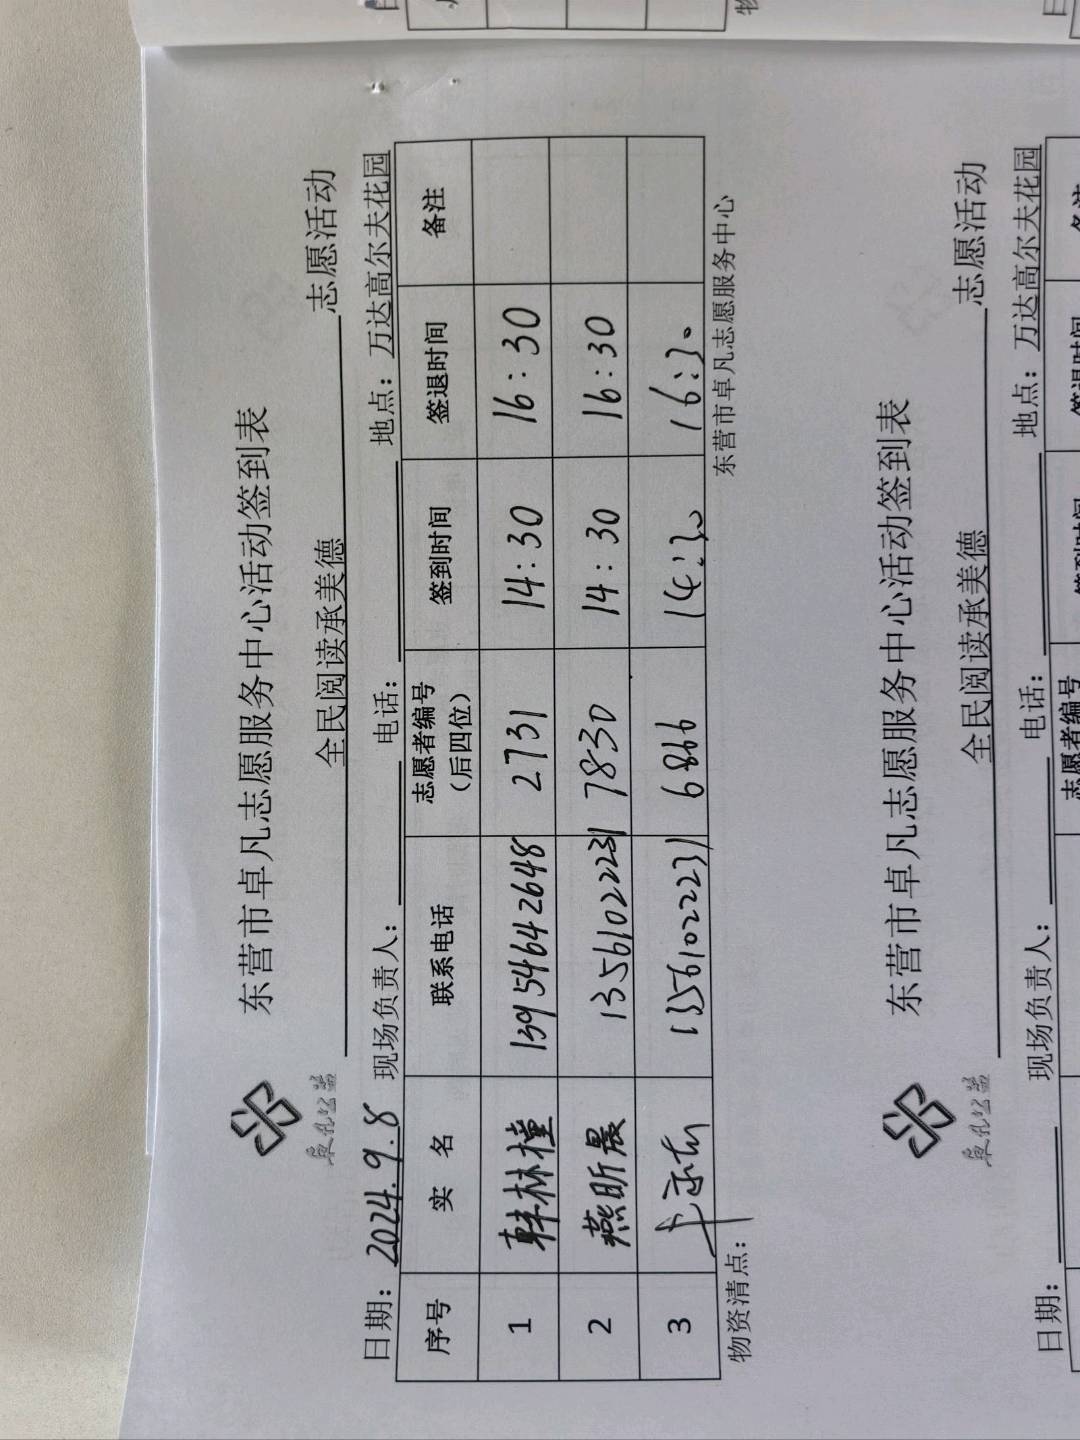 东营市卓凡志愿服务中心活动签到表
全民阅读承美德 志愿活动
日期：2024.9.8 现场负责人： 电话： 地点：万达高尔夫花园
序号 实 名 联系电话 志愿者编号（后四位） 签到时间 签退时间 备注
1 韩林橦 13954642648 2731 14:30 16:30
2 燕昕晨 13561022231 7830 14:30 16:30
3 13561022231 6866 14:30 16:30
物资清点： 东营市卓凡志愿服务中心
东营市卓凡志愿服务中心活动签到表
全民阅读承美德 志愿活动
日期： 现场负责人： 电话： 地点：万达高尔夫花园
志愿者编号 签到时间 签退时间 备注